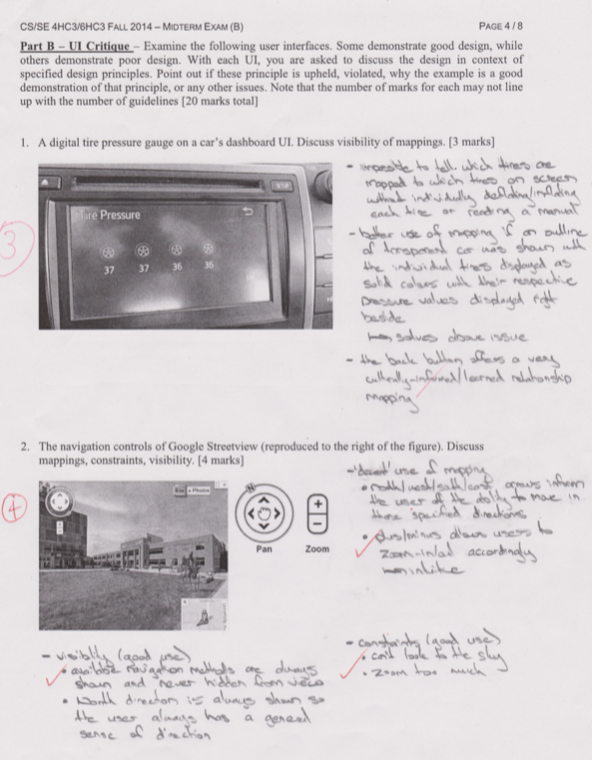 CS/SE 4HC3/6HC3 FALL 2014 – MIDTERM EXAM (B)
PAGE 4 / 8
Part B – UI Critique – Examine the following user interfaces. Some demonstrate good design, while
others demonstrate poor design. With each UI, you are asked to discuss the design in context of
specified design principles. Point out if these principle is upheld, violated, why the example is a good
demonstration of that principle, or any other issues. Note that the number of marks for each may not line
up with the number of guidelines [20 marks total]
1. A digital tire pressure gauge on a car's dashboard UI. Discuss visibility of mappings. [3 marks]
3
Tire Pressure
37 37 36 36
- impossible to tell which tires are
mapped to which tires on screen
without individually deflating/inflating
each tire or reading a manual
- better use of mapping if an outline
of transparent car was shown with
the individual tires displayed as
solid colours with their respective
pressure values displayed right
beside
solves above issue
- the back button offers a very
culturally-informed/learned relationship
mapping
2. The navigation controls of Google Streetview (reproduced to the right of the figure). Discuss
mappings, constraints, visibility. [4 marks]
4
Pan
Zoom
- 'decent' use of mapping
• north/west/south/east arrows inform
the user of the ability to move in
those specified directions
• plus/minus allows users to
zoom-in/out accordingly
- visibility (good use)
• available navigation methods are always
shown and never hidden from view
• North direction is always shown so
the user always has a general
sense of direction
- constraints (good use)
• can't look to the sky
• zoom too much